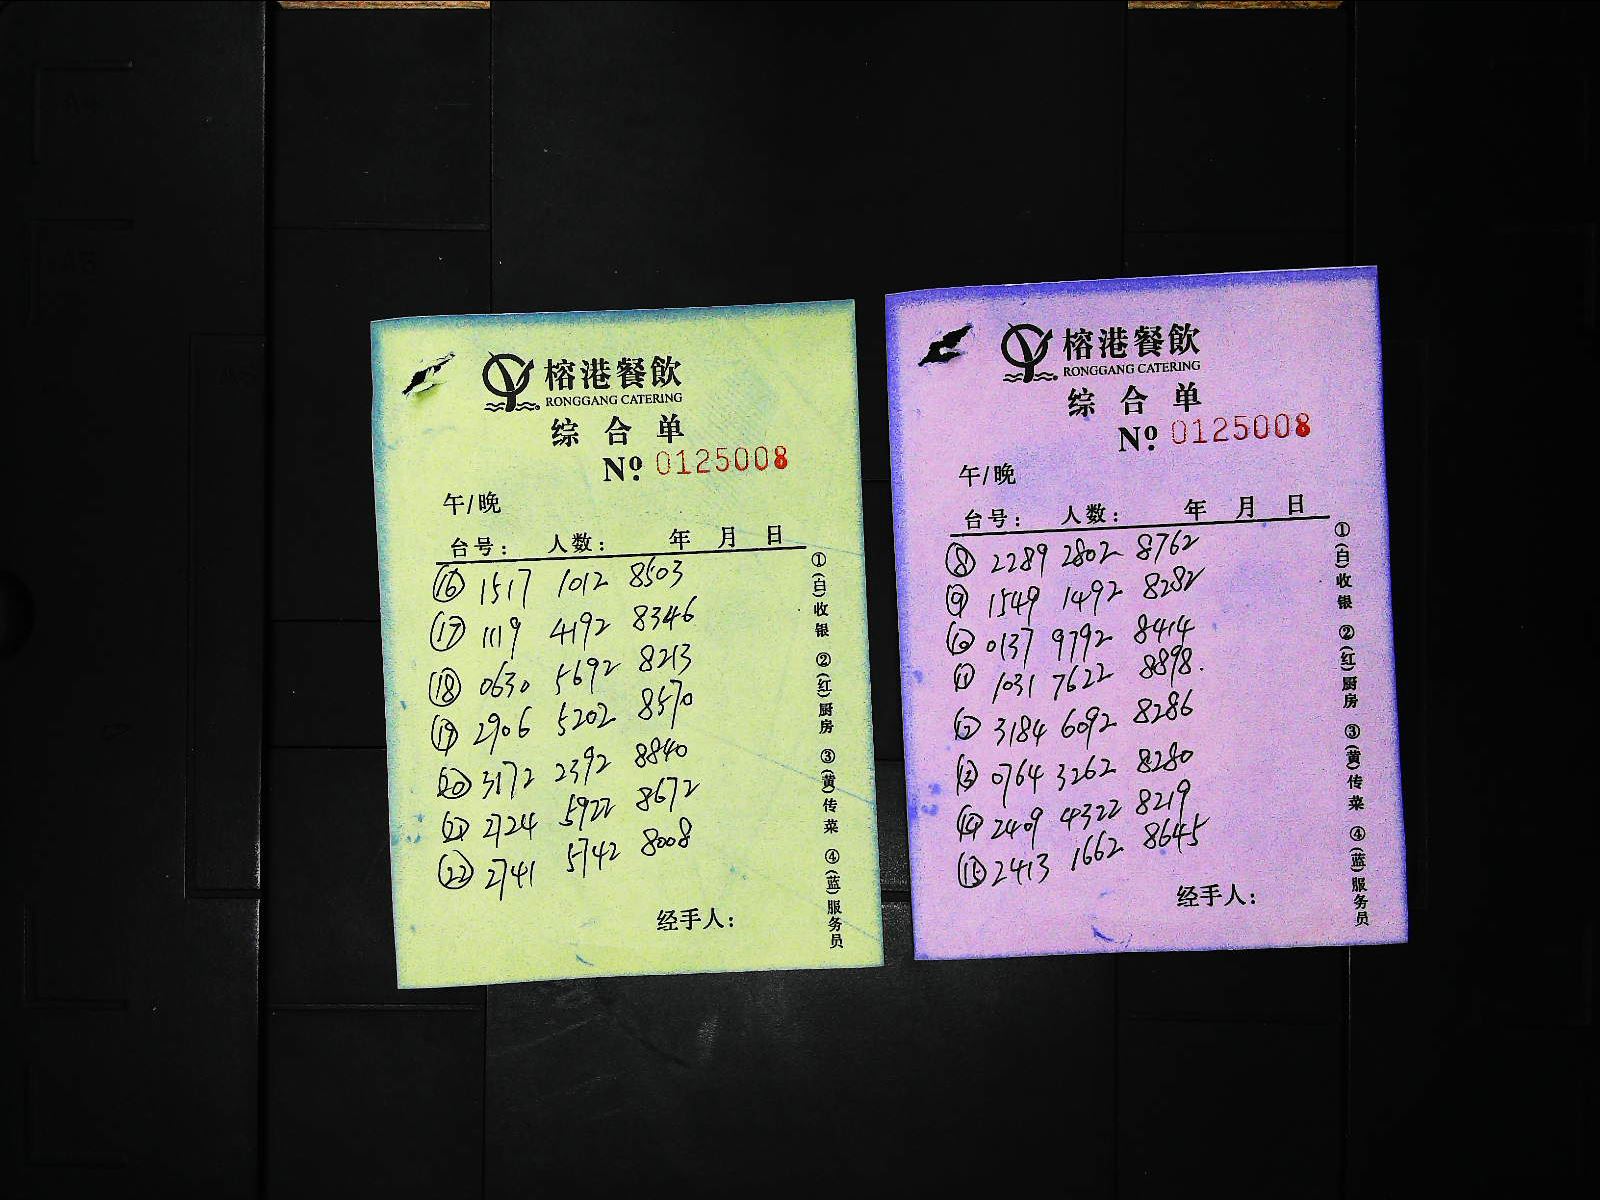 榕港餐飲
RONGGANG CATERING
综合单
Nº. 0125008
午/晚
台号: 人数: 年 月 日
⑯ 1517 1012 8503
⑰ 1119 4192 8346
⑱ 0630 5692 8213
⑲ 2906 5202 8570
⑳ 3172 2392 8840
㉑ 2724 5922 8672
㉒ 2741 5742 8008
经手人:
①(白)收银 ②(红)厨房 ③(黄)传菜 ④(蓝)服务员
榕港餐飲
RONGGANG CATERING
综合单
Nº. 0125008
午/晚
台号: 人数: 年 月 日
⑧ 2289 2802 8762
⑨ 1549 1492 8282
⑩ 0137 9792 8414
⑪ 1031 7622 8898.
⑫ 3184 6092 8286
⑬ 0764 3262 8280
⑭ 2409 4322 8219
⑮ 2413 1662 8645
经手人:
①(白)收银 ②(红)厨房 ③(黄)传菜 ④(蓝)服务员